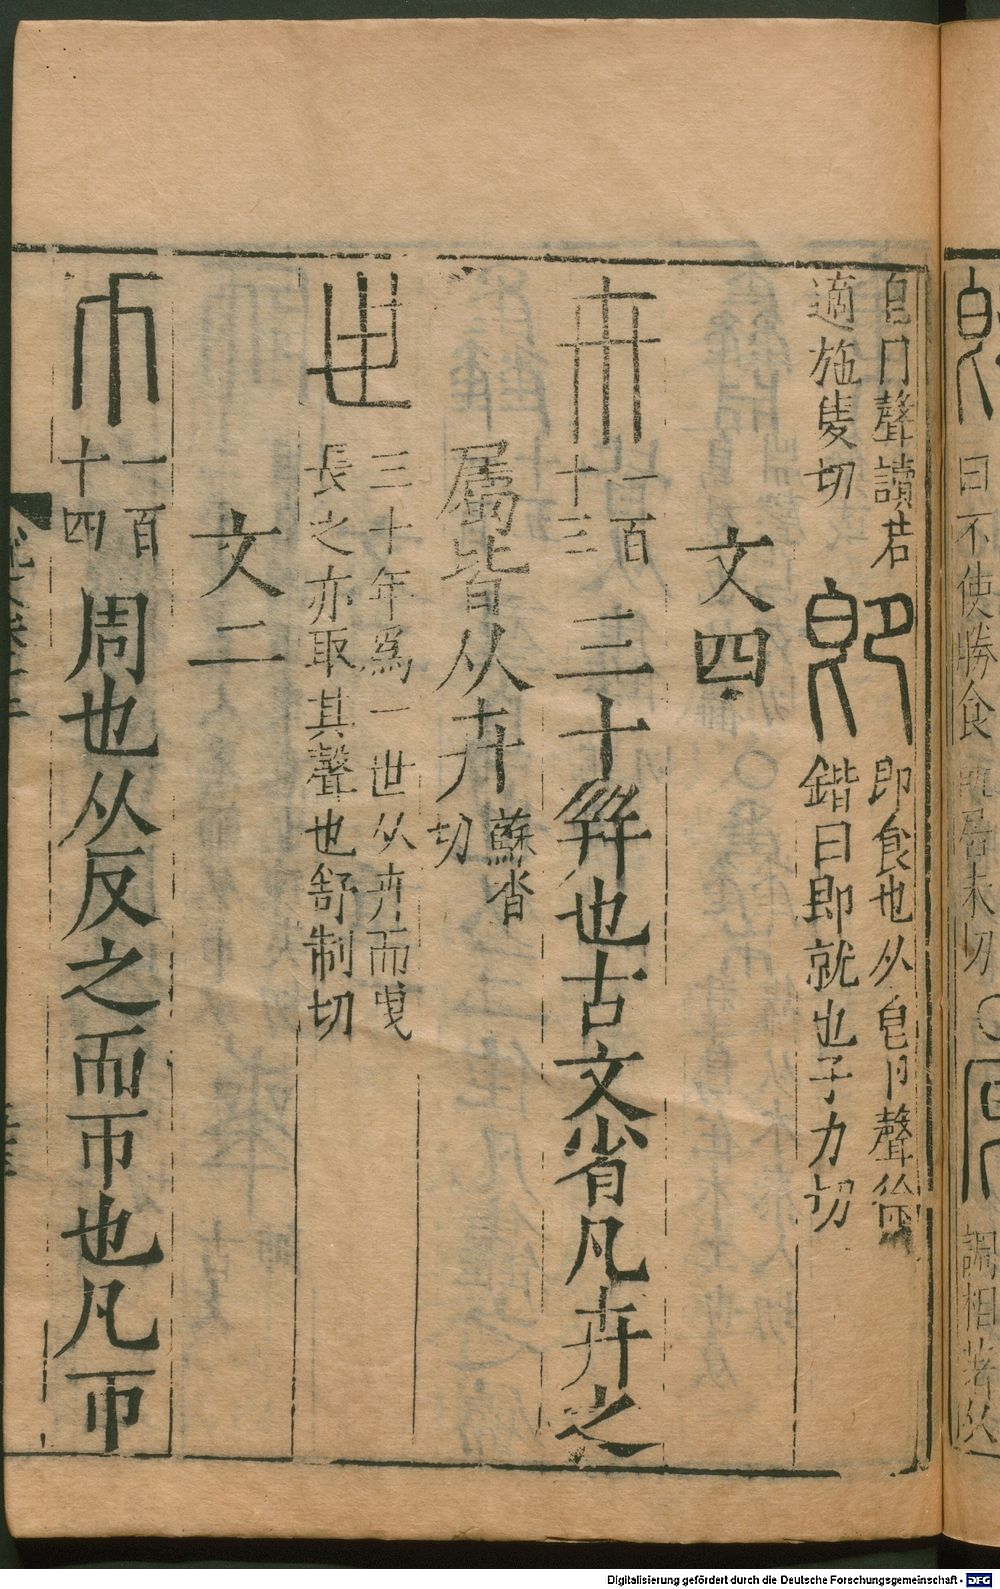 皀冂聲讀若
適施隻切
卽食也从皀卩聲徐
鍇曰即就也子力切
文四
卉
一百
十三
三十幷也古文省凡卉之
屬皆从卉
蘇沓
切
世
三十年爲一世从卉而曳
長之亦取其聲也舒制切
文二
帀
一百
十四
周也从反之而帀也凡帀
曰不使勝食
居未切
調相
Digitalisierung gefördert durch die Deutsche Forschungsgemeinschaft - DFG